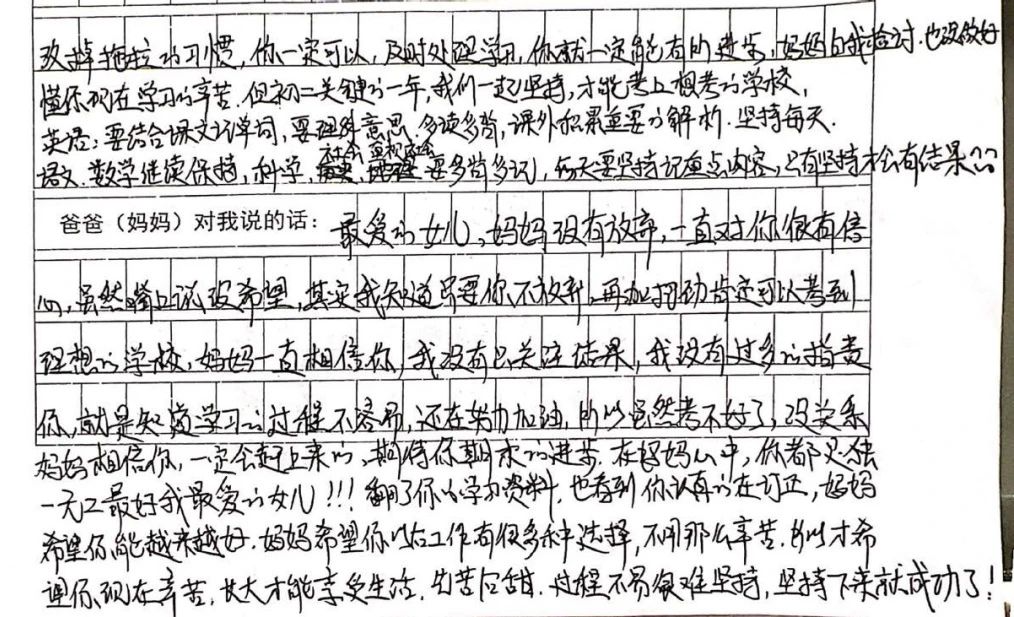 改掉拖拉的习惯,你一定可以,及时处理学习,你就一定能有所进步,妈妈自我检讨.也没做好
懂你现在学习的辛苦.但初二关键的一年,我们一起坚持,才能考上想考的学校,
英语:要结合课文记单词,要理解意思.多读多背,课外积累重要的解析.坚持每天.
社会 重视
语文.数学继续保持,科学, 要多背多记,每天要坚持记重点内容,只有坚持才会有结果??
爸爸(妈妈)对我说的话: 最爱的女儿,妈妈没有放弃,一直对你很有信
心,虽然嘴上说没希望,其实我知道只要你不放弃,再加把劲肯定可以考到
理想的学校,妈妈一直相信你,我没有只关注结果,我没有过多的指责
你,就是知道学习的过程不容易,还在努力加油,所以虽然考不好了,没关系
妈妈相信你,一定会赶上来的,期待你期末的进步.在妈妈心中,你都是独
一无二最好我最爱的女儿!!!翻了你的学习资料,也看到你认真的在订正,妈妈
希望你能越来越好.妈妈希望你以后工作有很多种选择,不用那么辛苦.所以才希
望你现在辛苦,长大才能享受生活,先苦后甜.过程不易很难坚持,坚持下来就成功了!